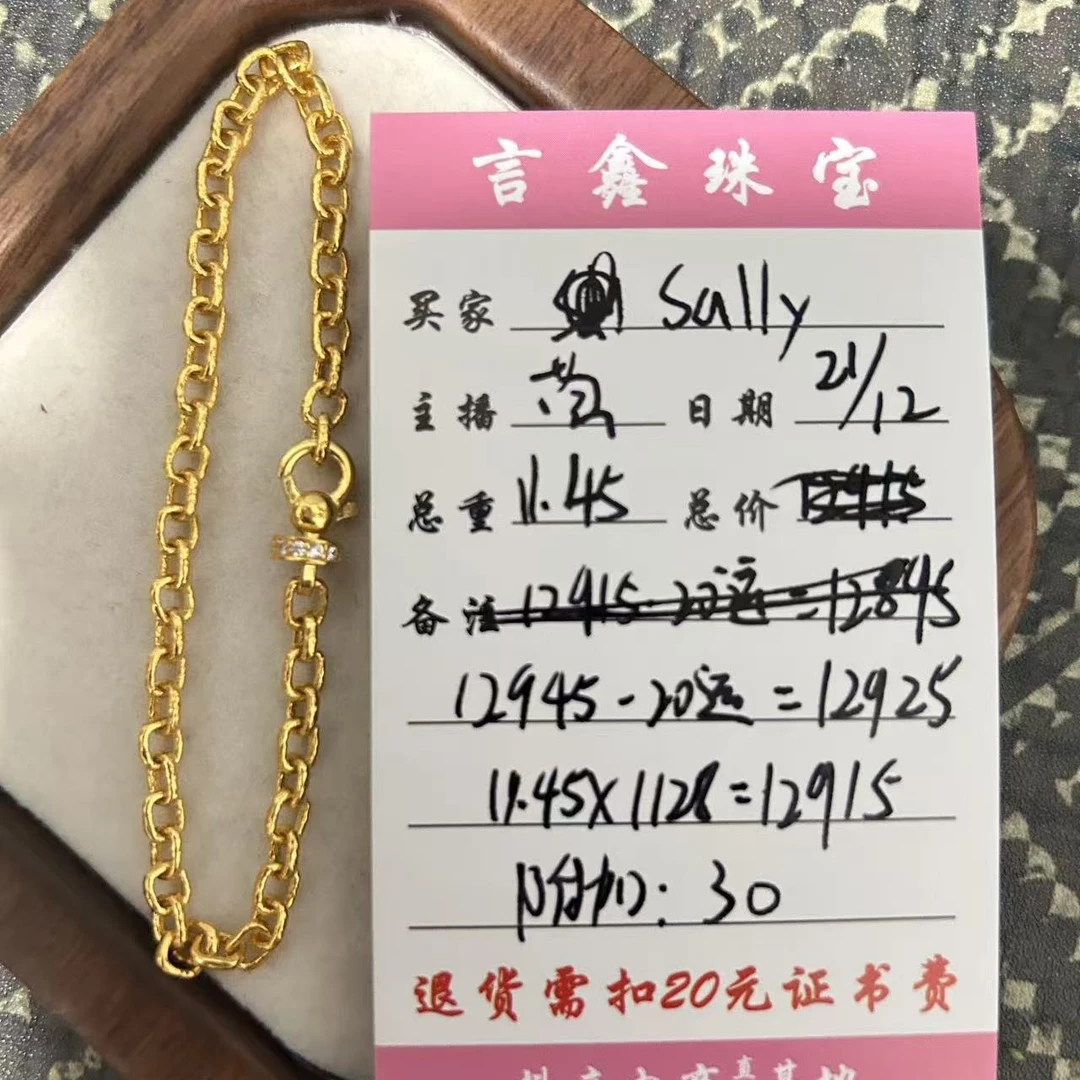 言鑫珠宝
买家 Sally
主播 黄 日期 21/12
总重 11.45 总价 12915
备注 12915-20运=12895
12945-20运=12925
11.45x1128=12915
附加:30
退货需扣20元证书费